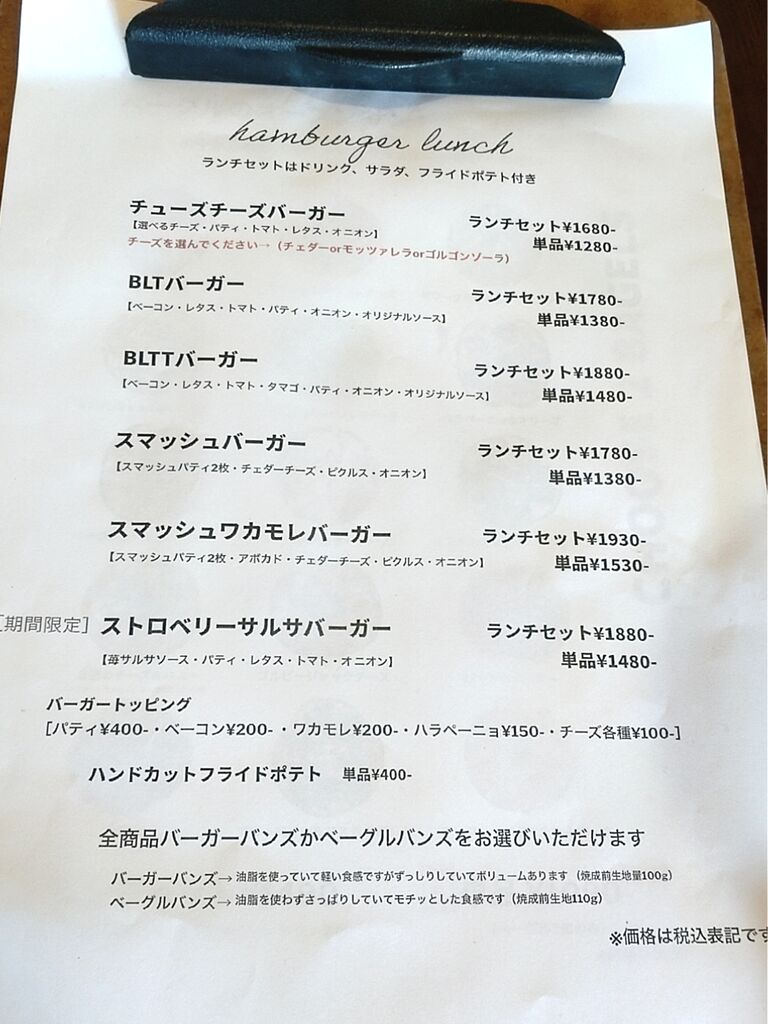 hamburger lunch
ランチセットはドリンク、サラダ、フライドポテト付き
チューズチーズバーガー ランチセット¥1680-
【選べるチーズ・パティ・トマト・レタス・オニオン】 単品¥1280-
チーズを選んでください→（チェダーorモッツァレラorゴルゴンゾーラ）
BLTバーガー ランチセット¥1780-
【ベーコン・レタス・トマト・パティ・オニオン・オリジナルソース】 単品¥1380-
BLTTバーガー ランチセット¥1880-
【ベーコン・レタス・トマト・タマゴ・パティ・オニオン・オリジナルソース】 単品¥1480-
スマッシュバーガー ランチセット¥1780-
【スマッシュパティ2枚・チェダーチーズ・ピクルス・オニオン】 単品¥1380-
スマッシュワカモレバーガー ランチセット¥1930-
【スマッシュパティ2枚・アボカド・チェダーチーズ・ピクルス・オニオン】 単品¥1530-
［期間限定］ストロベリーサルサバーガー ランチセット¥1880-
【苺サルサソース・パティ・レタス・トマト・オニオン】 単品¥1480-
バーガートッピング
［パティ¥400-・ベーコン¥200-・ワカモレ¥200-・ハラペーニョ¥150-・チーズ各種¥100-］
ハンドカットフライドポテト 単品¥400-
全商品バーガーバンズかベーグルバンズをお選びいただけます
バーガーバンズ→油脂を使っていて軽い食感ですがずっしりしていてボリュームあります（焼成前生地量100g）
ベーグルバンズ→油脂を使わずさっぱりしていてモチッとした食感です（焼成前生地110g）
※価格は税込表記です